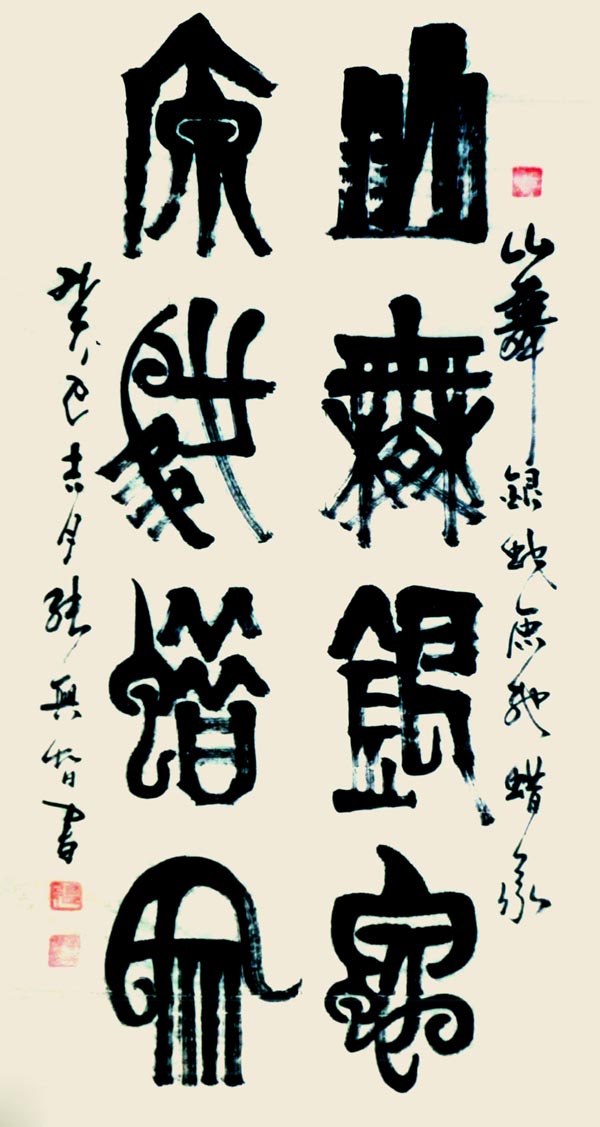 山舞銀蛇原驰蜡象
山舞銀蛇
原馳蜡象
癸巳吉月張興智書